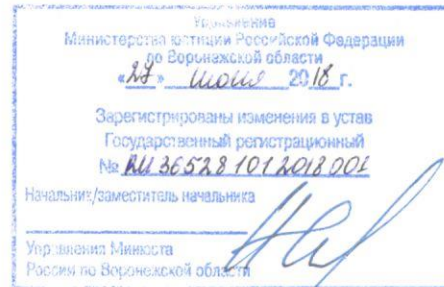 Управление
Министерства юстиции Российской Федерации
по Воронежской области
«27» июня 2018 г.
Зарегистрированы изменения в устав
Государственный регистрационный
№ RU 365281012018001
Начальник/заместитель начальника
Управления Минюста
России по Воронежской области